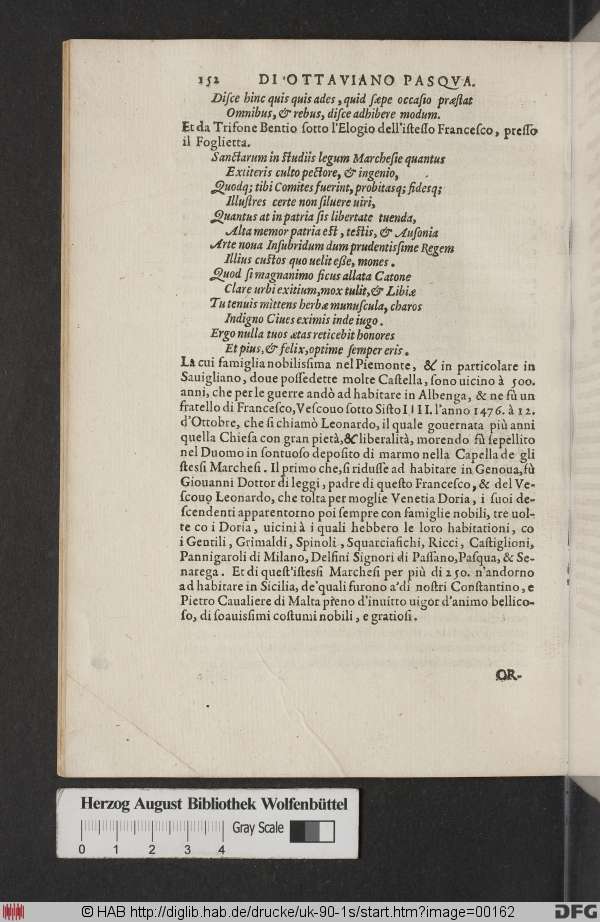 152 DI OTTAVIANO PASQVA.
Disce hinc quis quis ades, quid sæpe occasio præstat
Omnibus, & rebus, disce adhibere modum.
Et da Trifone Bentio sotto l'Elogio dell'istesso Francesco, presso
il Foglietta.
Sanctarum in studiis legum Marchesie quantus
Extiteris culto pectore, & ingenio,
Quodq; tibi Comites fuerint, probitasq; fidesq;
Illustres certe non siluere uiri,
Quantus at in patria sis libertate tuenda,
Alta memor patria est, testis, & Ausonia
Arte noua Insubridum dum prudentissime Regem
Illius custos quo uelit esse, mones.
Quod si magnanimo ficus allata Catone
Clare urbi exitium, mox tulit, & Libiæ
Tu tenuis mittens herbæ munuscula, charos
Indigno Ciues eximis inde iugo.
Ergo nulla tuos ætas reticebit honores
Et pius, & felix, optime semper eris.
La cui famiglia nobilissima nel Piemonte, & in particolare in
Sauigliano, doue possedette molte Castella, sono uicino à 500.
anni, che per le guerre andò ad habitare in Albenga, & ne fù un
fratello di Francesco, Vescouo sotto Sisto IIII. l'anno 1476. à 12.
d'Ottobre, che si chiamò Leonardo, il quale gouernata più anni
quella Chiesa con gran pietà, & liberalità, morendo fù sepellito
nel Duomo in sontuoso deposito di marmo nella Capella de gli
stessi Marchesi. Il primo che, si ridusse ad habitare in Genoua, fù
Giouanni Dottor di leggi, padre di questo Francesco, & del Ve-
scouo Leonardo, che tolta per moglie Venetia Doria, i suoi de-
scendenti apparentorno poi sempre con famiglie nobili, tre uol-
te co i Doria, uicini à i quali hebbero le loro habitationi, co
i Gentili, Grimaldi, Spinoli, Squarciafichi, Ricci, Castiglioni,
Pannigaroli di Milano, Delfini Signori di Passano, Pasqua, & Se-
narega. Et di quest'istessi Marchesi per più di 250. n'andorno
ad habitare in Sicilia, de'quali furono a'dì nostri Constantino, e
Pietro Caualiere di Malta preno d'inuitto uigor d'animo bellico-
so, di soauissimi costumi nobili, e gratiosi.
OR-
Herzog August Bibliothek Wolfenbüttel
Gray Scale
0 1 2 3 4
© HAB http://diglib.hab.de/drucke/uk-90-1s/start.htm?image=00162
DFG